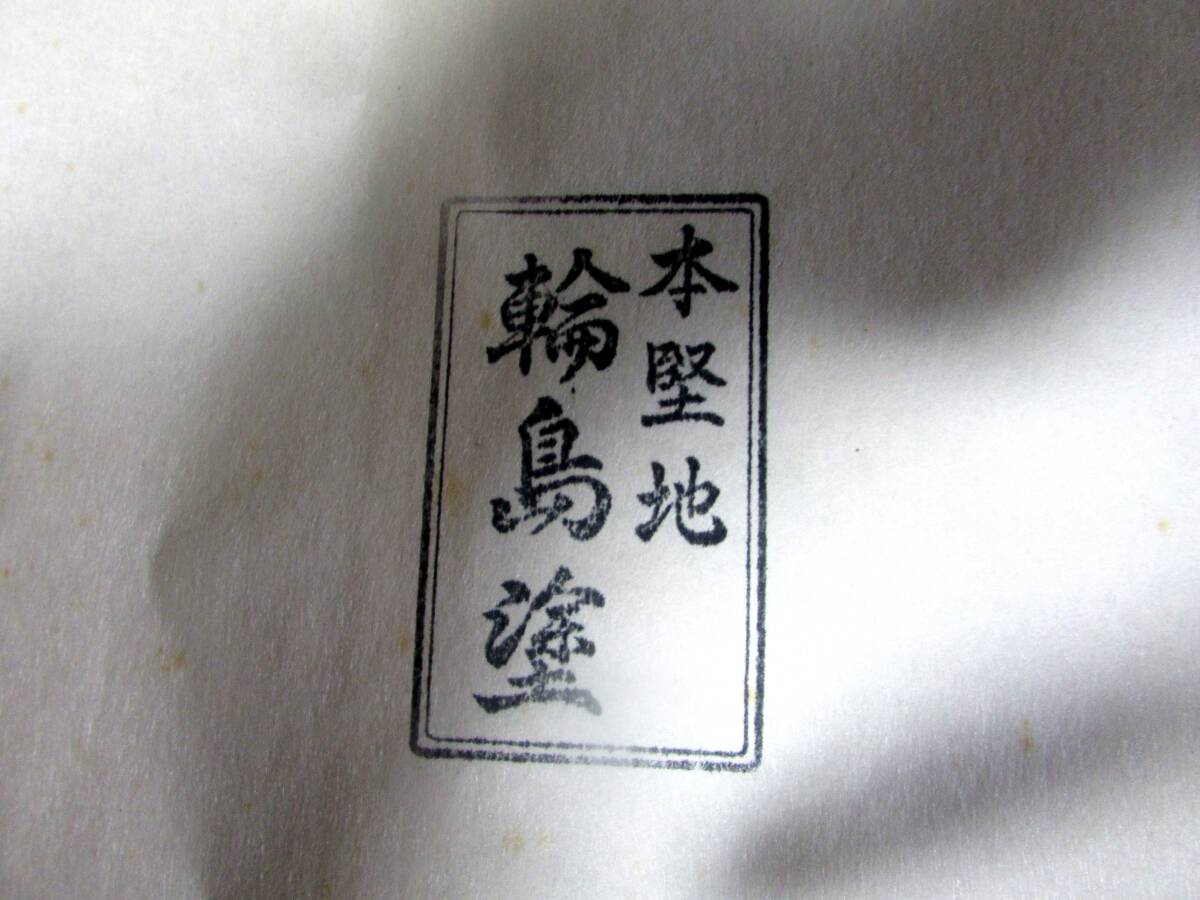 本堅地
輪島塗